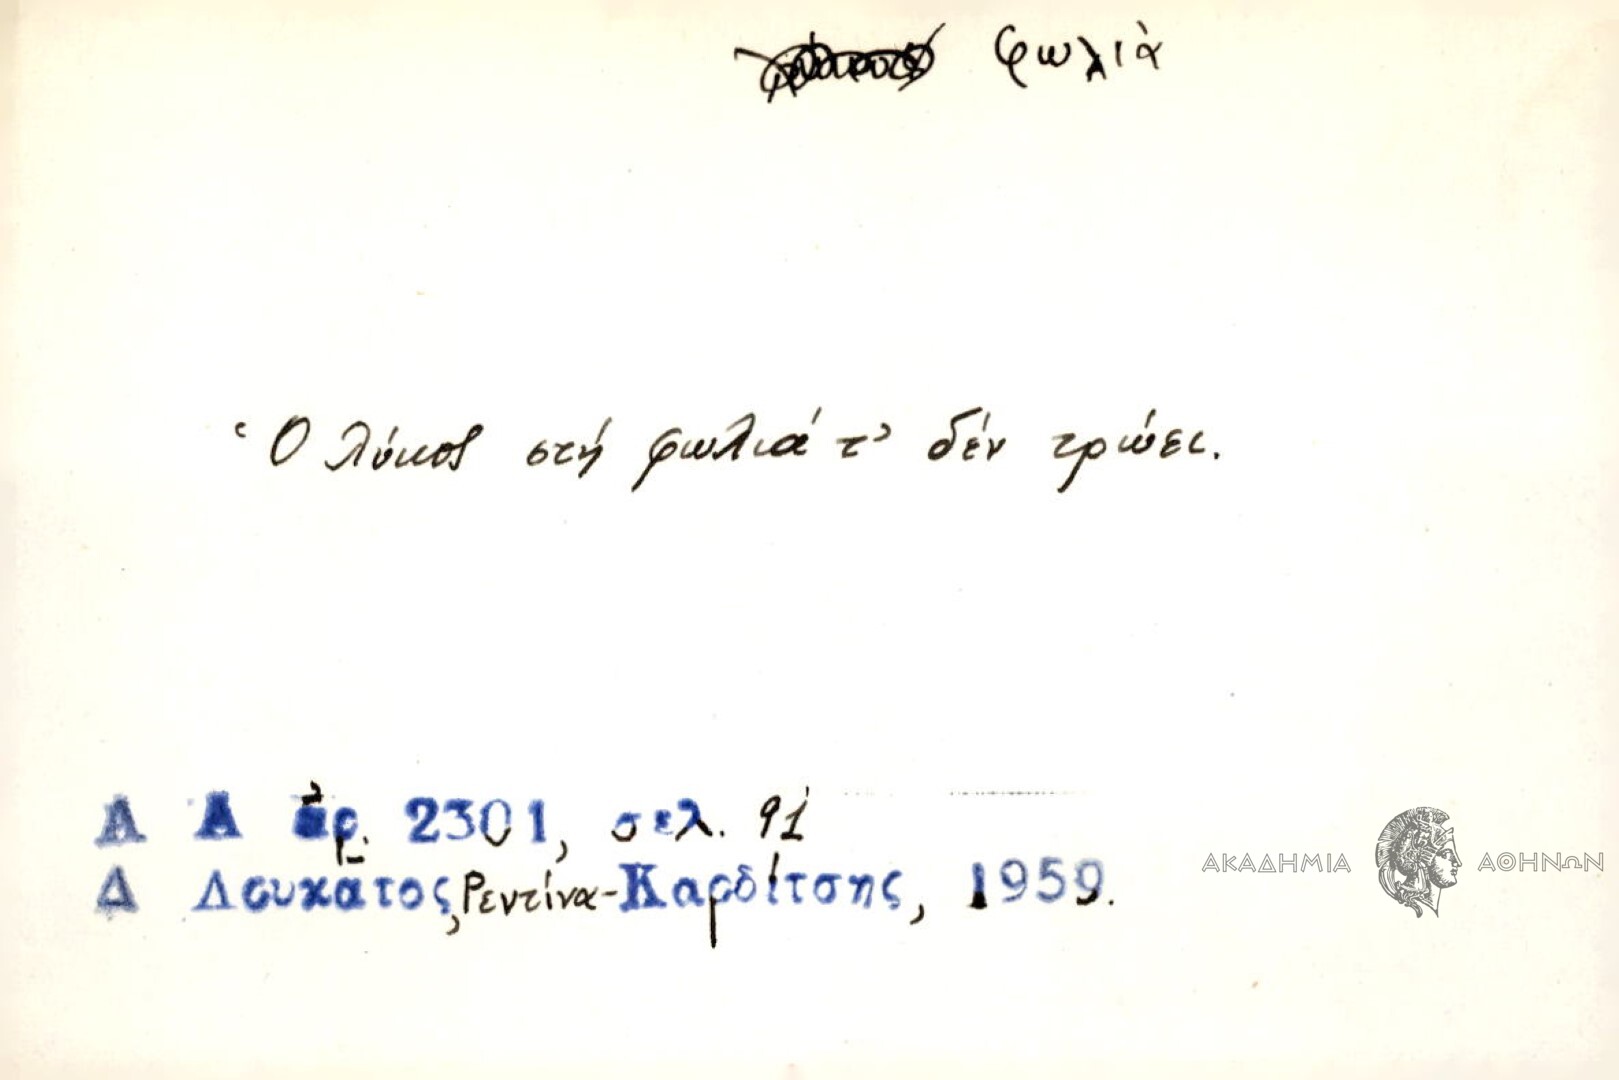 φωλιὰ
Ὁ λύκος στή φωλιά τ' δέν τρώει.
Λ Α ἀρ. 2301, σελ. 91
Δ Λουκᾶτος, Ρεντίνα-Καρδίτσης, 1959.
ΑΚΑΔΗΜΙΑ ΑΘΗΝΩΝ